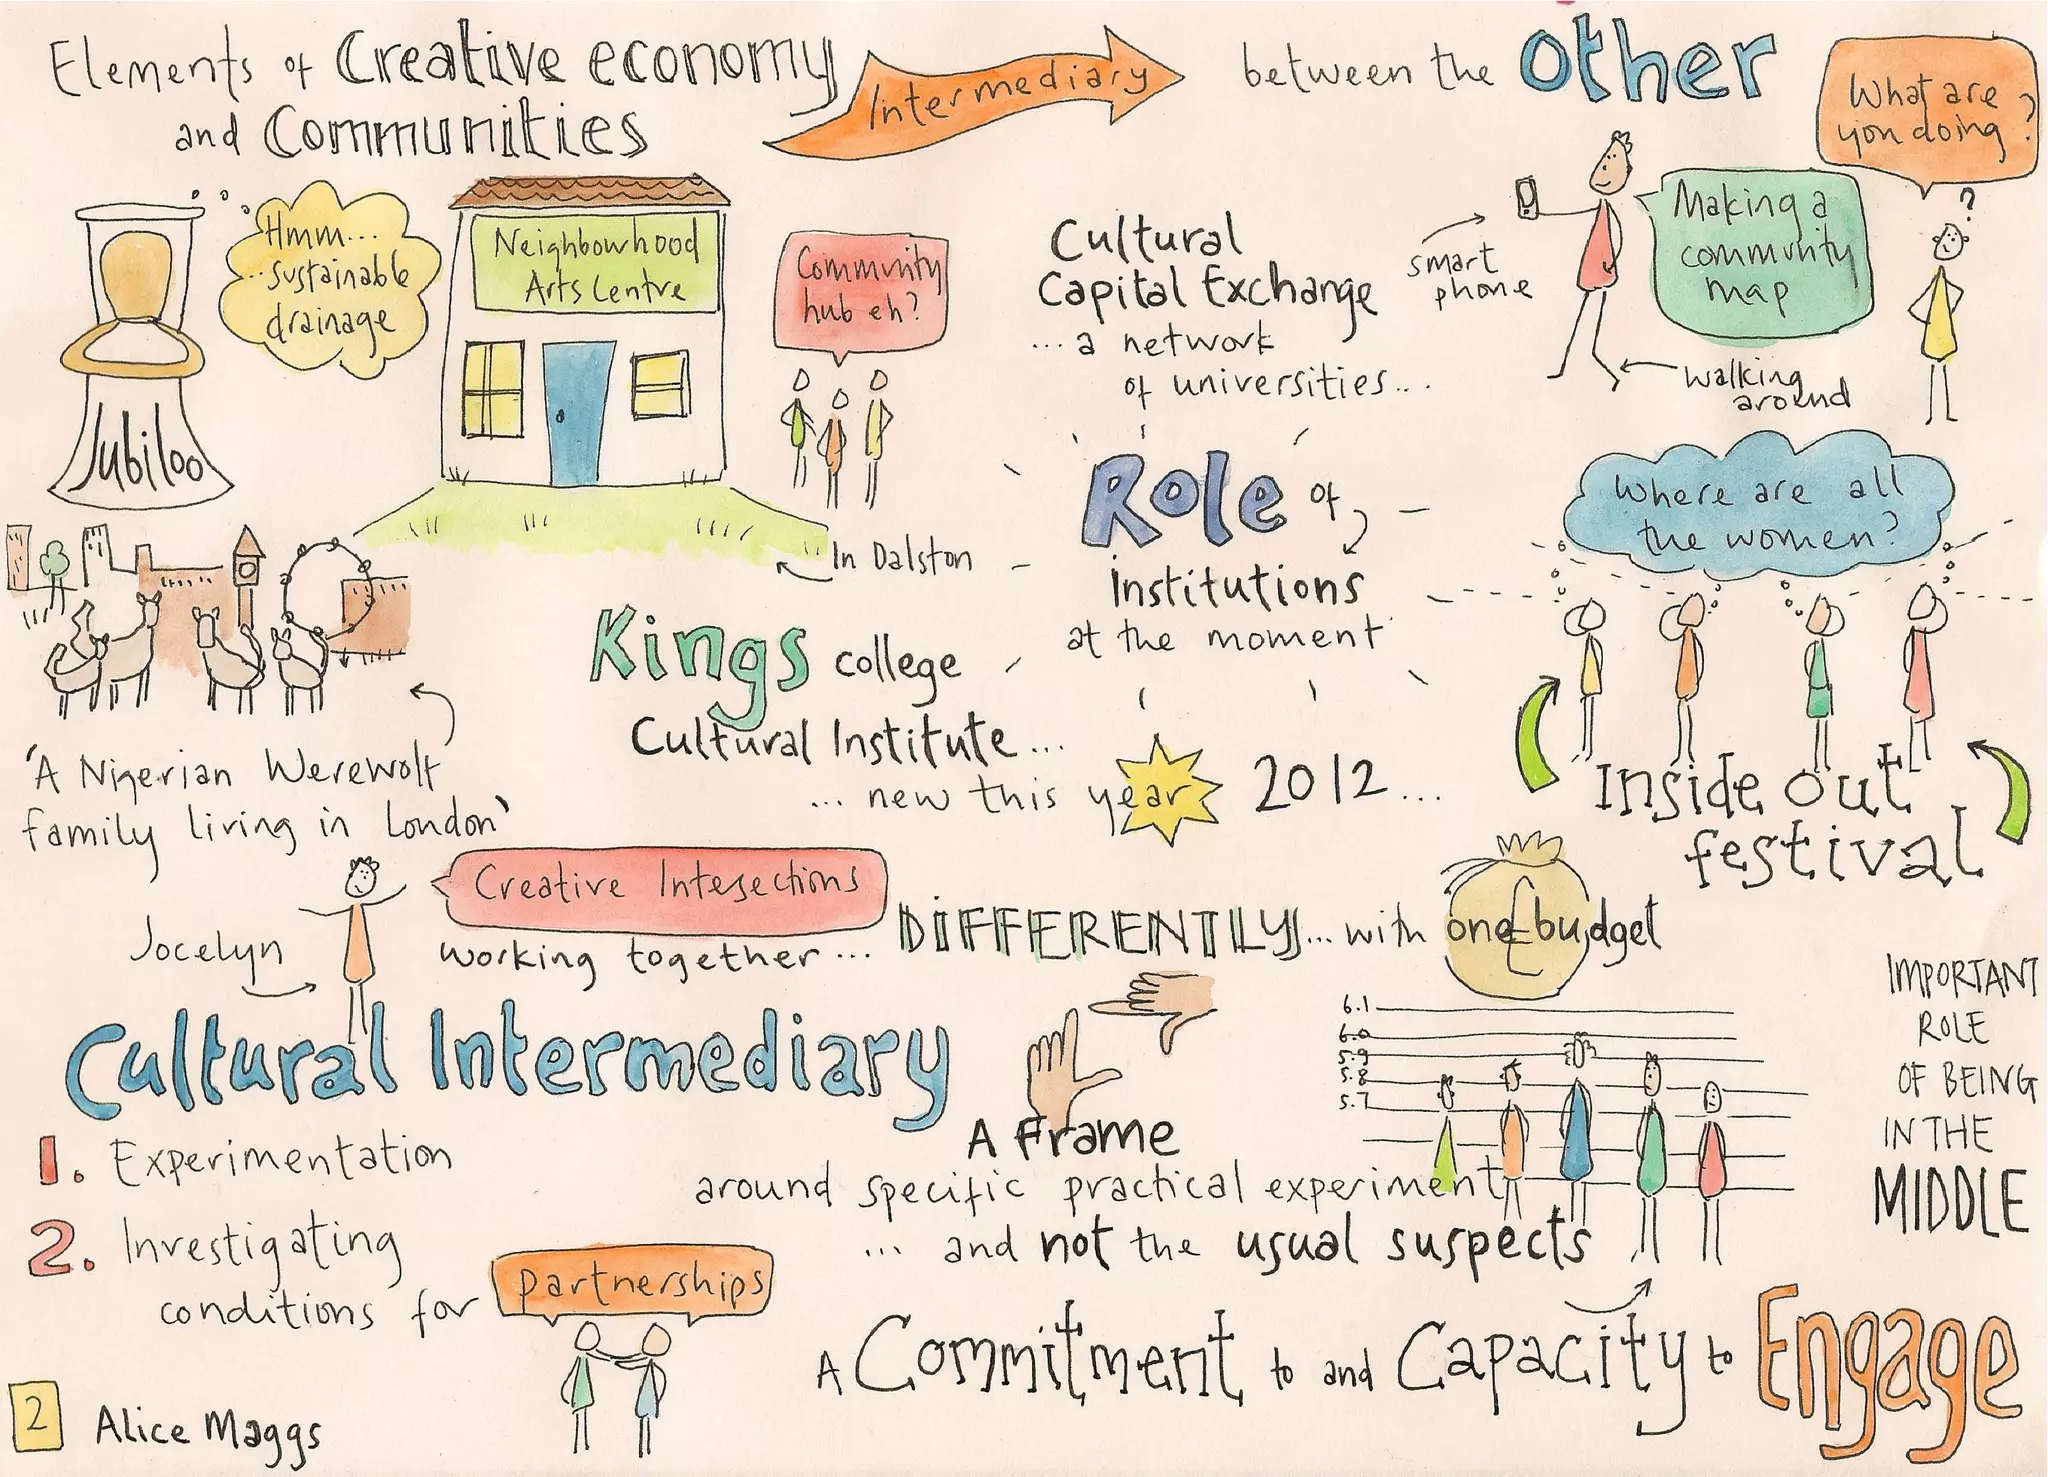 Elements of Creative economy
and Communities
Intermediary
between the other
What are
you doing?
Hmm...
...sustainable
drainage
Jubiloo
Neighbourhood
Arts Centre
Community
hub eh?
In Dalston
Cultural
Capital Exchange
... a network
of universities...
smart
phone
Making a
community
map
?
walking
around
Role of
Institutions
at the moment
Where are all
the women?
Inside out
festival
Kings college
Cultural Institute...
... new this year 2012...
'A Nigerian Werewolf
family living in London'
Jocelyn
Creative Intersections
working together... DIFFERENTLY... with one budget
£
Cultural Intermediary
1. Experimentation
2. Investigating
conditions for partnerships
A Frame
around specific practical experiment
... and not the usual suspects
6.1
6.0
5.9
5.8
5.7
IMPORTANT
ROLE
OF BEING
IN THE
MIDDLE
A Commitment to and Capacity to Engage
2 Alice Maggs